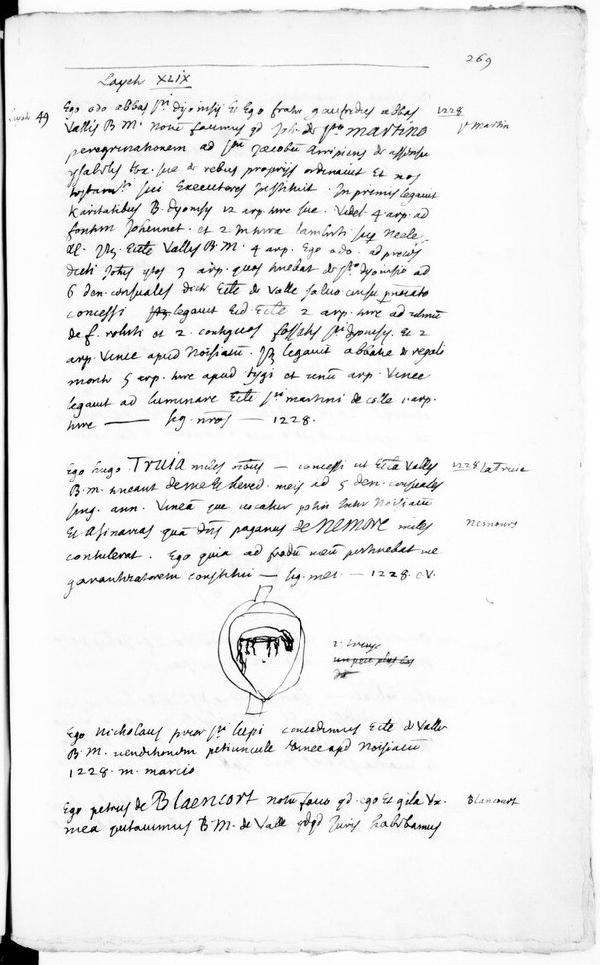 269
Layett XLIX
49
Ego odo abbas sti dyonisij Et Ego frater gaufridus abbas 1228
Vallis B.M. Notu facimus qd Joh. de sto MARTINO St Martin
peregrinationem ad stm Jacobum Arripiens de assensu
ysabelis Ux. sue de rebus proprijs ordinavit Et nos
sui Executores Instituit. In primis legavit
Karitatibus B. dyonisij 12 arp. terre sue. Videl. 4 arp. ad
fontem Johennet. et 2 in terra lamberti
Eccle Vallis B.M. 4 arp. Ego odo. ad preces
dicti Johis istos 3 arp. quos tenebat de sto dyonisio ad
6 den. censuales dicti Eccle de Valle salvo censu
concessi legavit Eid. Eccle 2 arp. terre ad
de f. et 2. contiguos fossatis sti dyonisij. Et 2
arp. Vinee apud Noisiacu. legavit abbatie de regali
monte 5 arp. terre apud et unu arp. Vinee
legavit ad luminare Eccle sti martini de colle 1 arp.
terre — sig. nros — 1228.
Ego hugo TRUIA miles — concessi ut Eccla Vallis 1228 La Truie
B.M. teneant de me Et hered. meis ad 5 den. censuales
sing. ann. Vineā que vocatur Inter Noisiacu
Et Asinarias quā dns paganus de NEMORE miles Nemours
contulerat. Ego quia ad feodu meu pertinebat me
garantizatorem constitui — sig. met. — 1228. CV.
2. pouces
un peu plus bas
Ego Nicholaus prior sti lupi concedimus Eccle de Valle
B.M. venditionem petiuncule vinee apd Noisiacu
1228. m. marcio
Ego petrus de BlaencorT notu facio qd ego Et gila Ux. Blancourt
mea quitavimus B.M. de Valle qdqd Juris habebamus